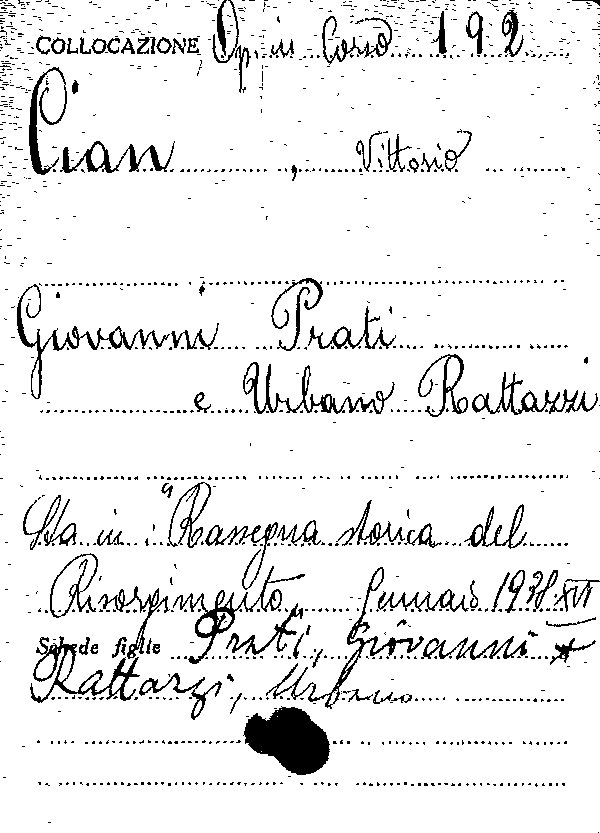 COLLOCAZIONE Op. in Corso 192
Cian, Vittorio
Giovanni Prati
e Urbano Rattazzi
Sta in: "Rassegna storica del
Risorgimento" Gennaio 1938. XVI
Schede figlie Prati, Giovanni
Rattazzi, Urbano